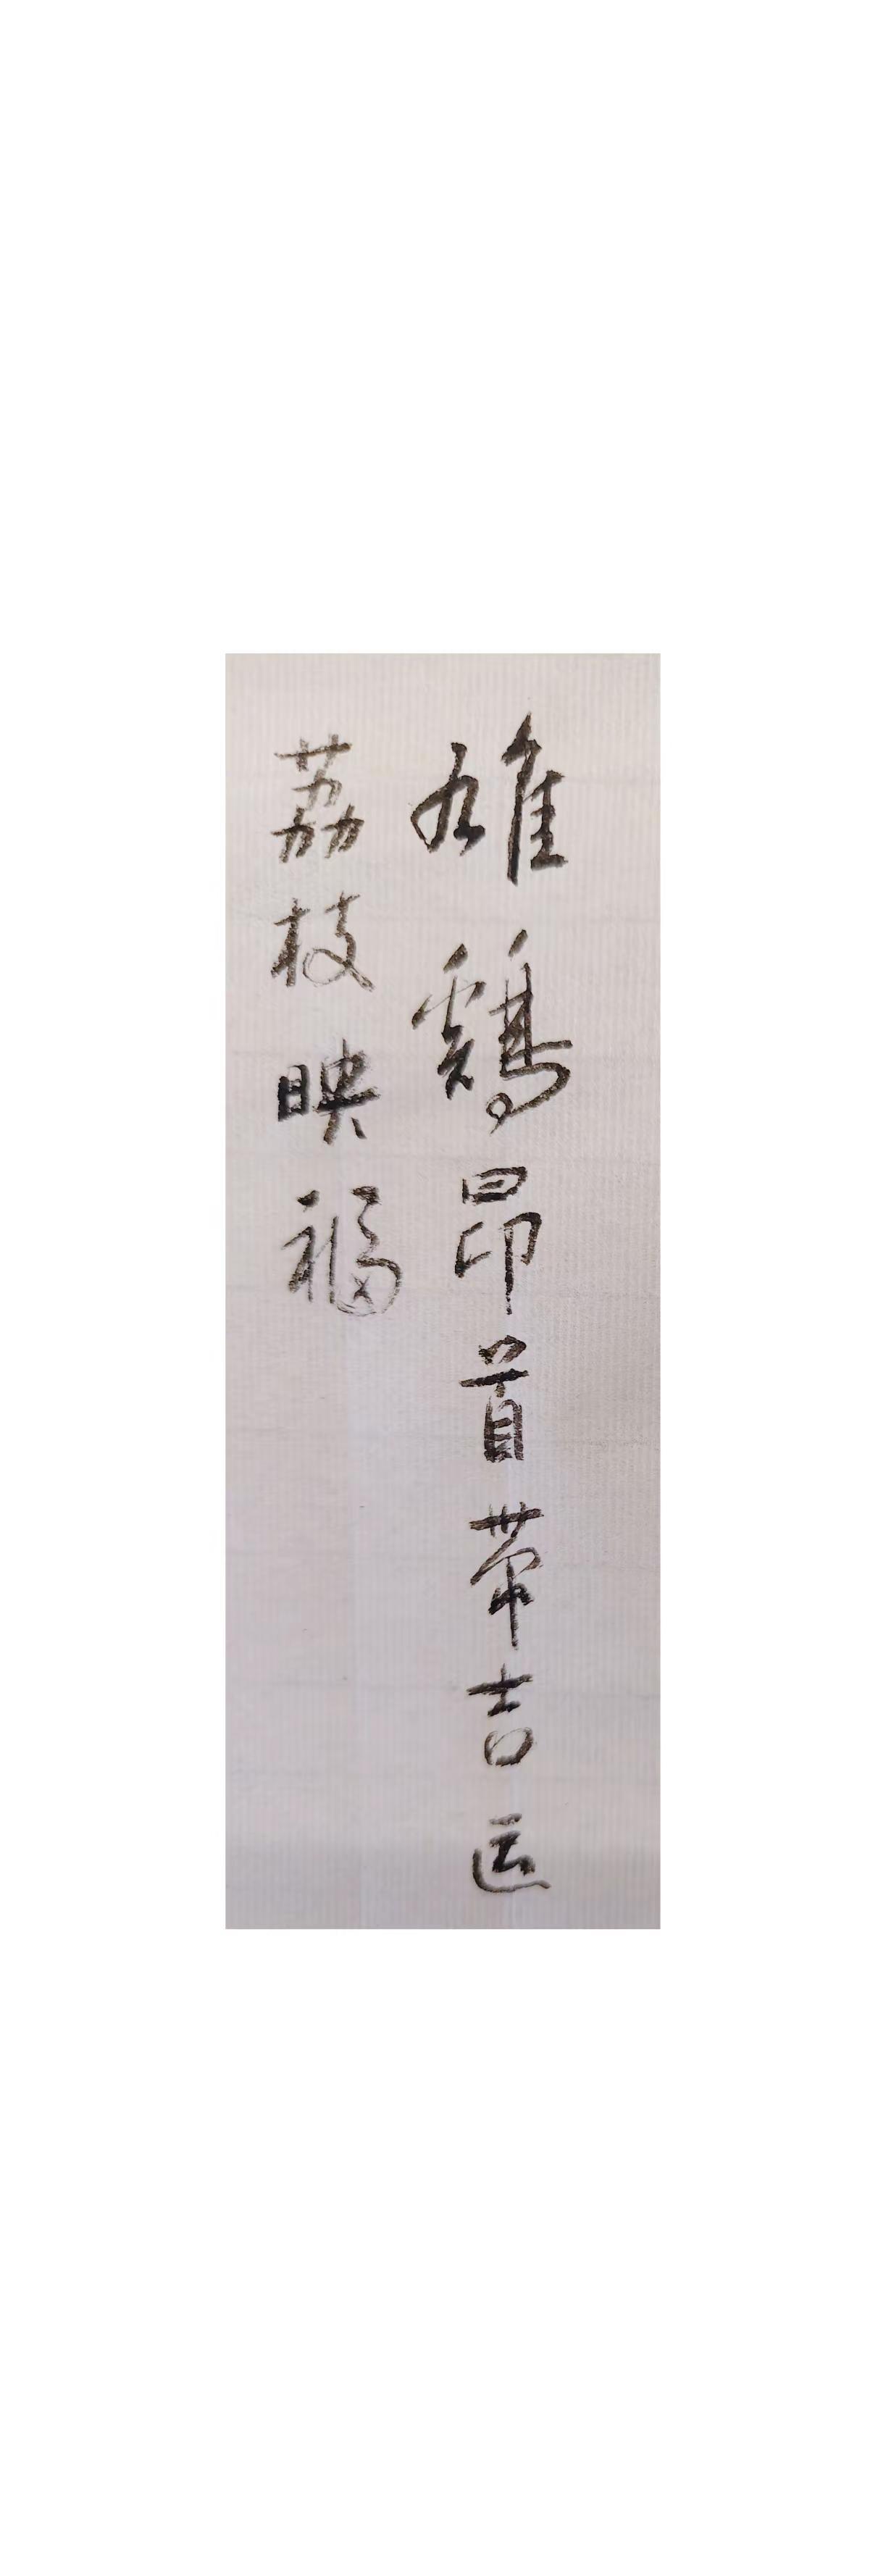 雄鷄昂首带吉运
荔枝映福